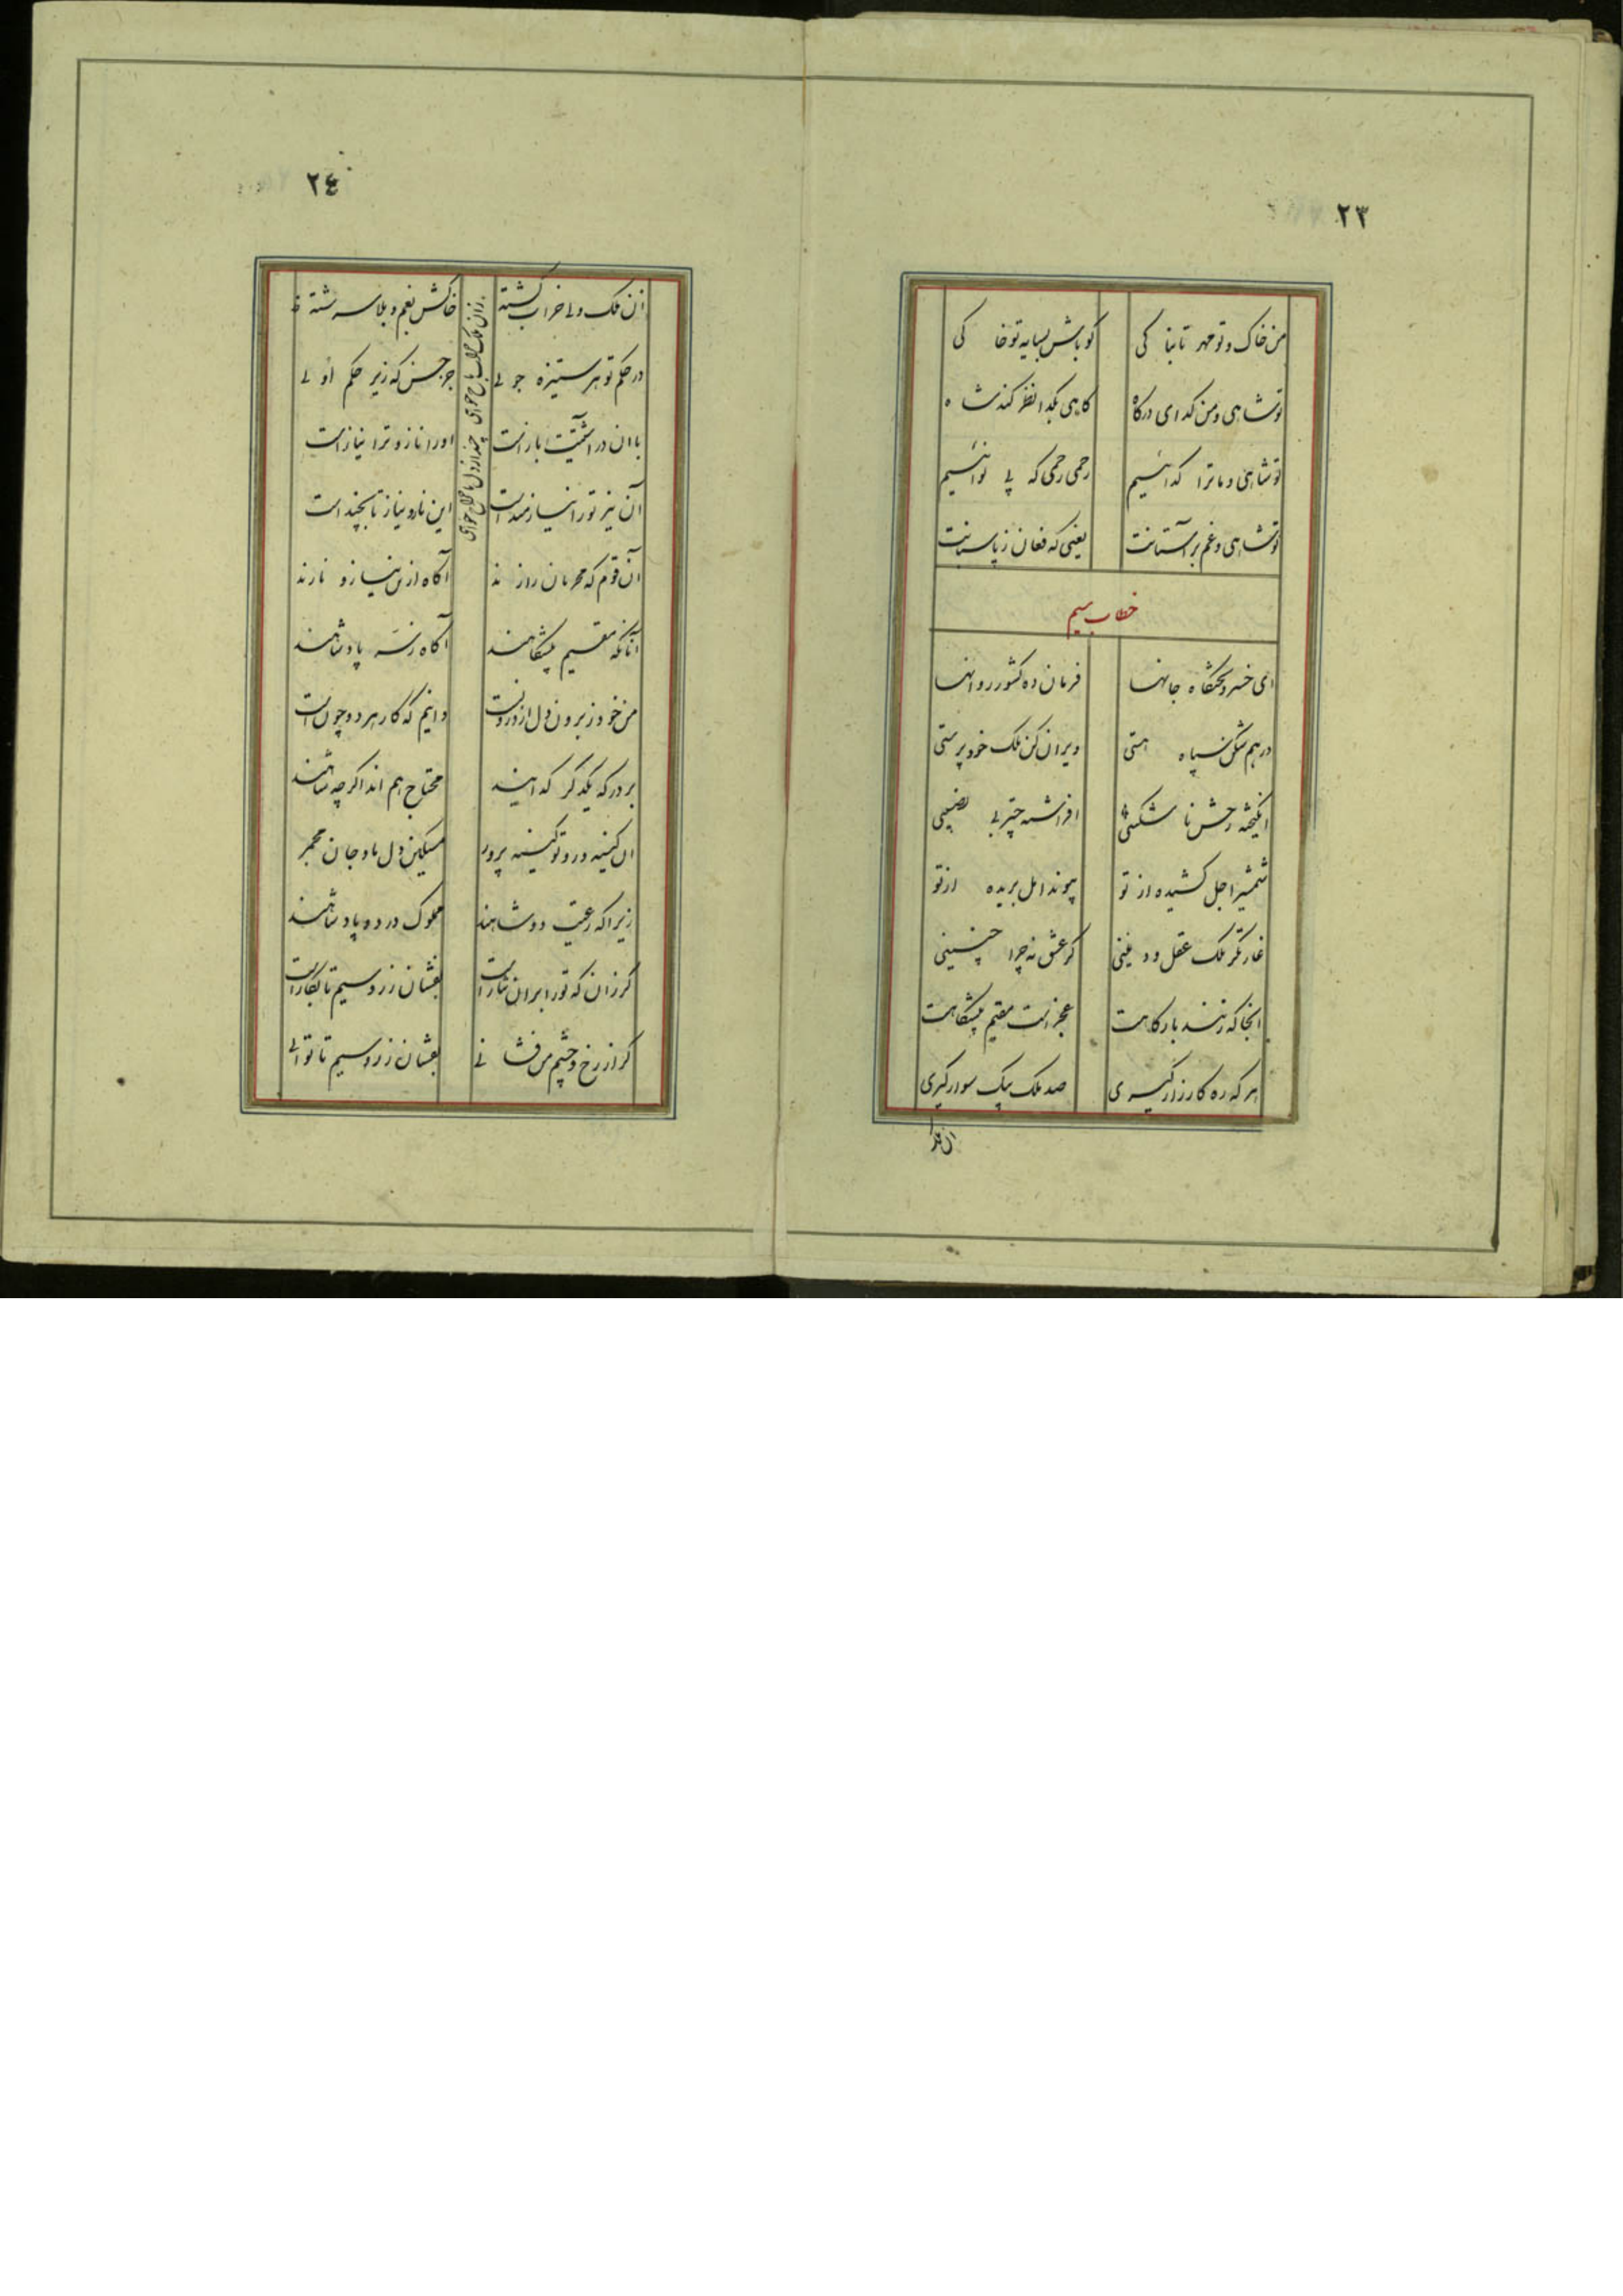 ٢٣
من خاک و تو مهر تابناکی گو باش بسایه تو خاکی
تو شاهی و من گدای درگاه گاهی بگدا نظر کند شاه
تو شاهی و ما ترا گدائیم رحمی رحمی که بی نوائیم
تو شاهی و غم بر آستانت یعنی که فغان ز پاسبانت
خطاب سیم
ای خسرو تختگاه جانها فرمان ده کشور روانها
درهم شکن سپاه هستی ویران کن ملک خود پرستی
انگیخته رخش نا شکیبی افراشته چتر بی نصیبی
شمشیر اجل کشیده از تو پیوند امل بریده از تو
غارتگر ملک عقل و دینی گر عشق نه چرا چنینی
آنجا که زنند بارگاهت عجز است مقیم پیشگاهت
هر گه ره کارزار گیری صد ملک بیک سوار گیری
٢٤
آن ملک ولی خراب گشته خاکش بغم و بلا سرشته
زان ملک خراب باج خواهی چند از دل ما خراج خواهی
در حکم تو هر ستیزه جوئی جز حسن که زیر حکم اوئی
با آن در آشتیت باز است او را ناز و ترا نیاز است
آن نیز تو را نیازمند است این ناز و نیاز تا بچند است
آن قوم که محرمان رازند آگاه ازین نیاز و نازند
آنانکه مقیم پیشگاهند آگاه ز سر پادشاهند
من خود ز برون دل از درونست دانیم که کار هر دو چون است
بر درگه یکدگر گدایند محتاج هم اند اگر چه شاهند
آن کینه ور و تو کینه پرور مسکین دل ما و جان
زیرا که رعیت دو شاهند مملوک در دو پادشاهند
گر زان که تو را بر آن نثار است بفشان زر و سیم تا بکار است
گر از رخ و چشم من فشانی بفشان زر و سیم تا توانی